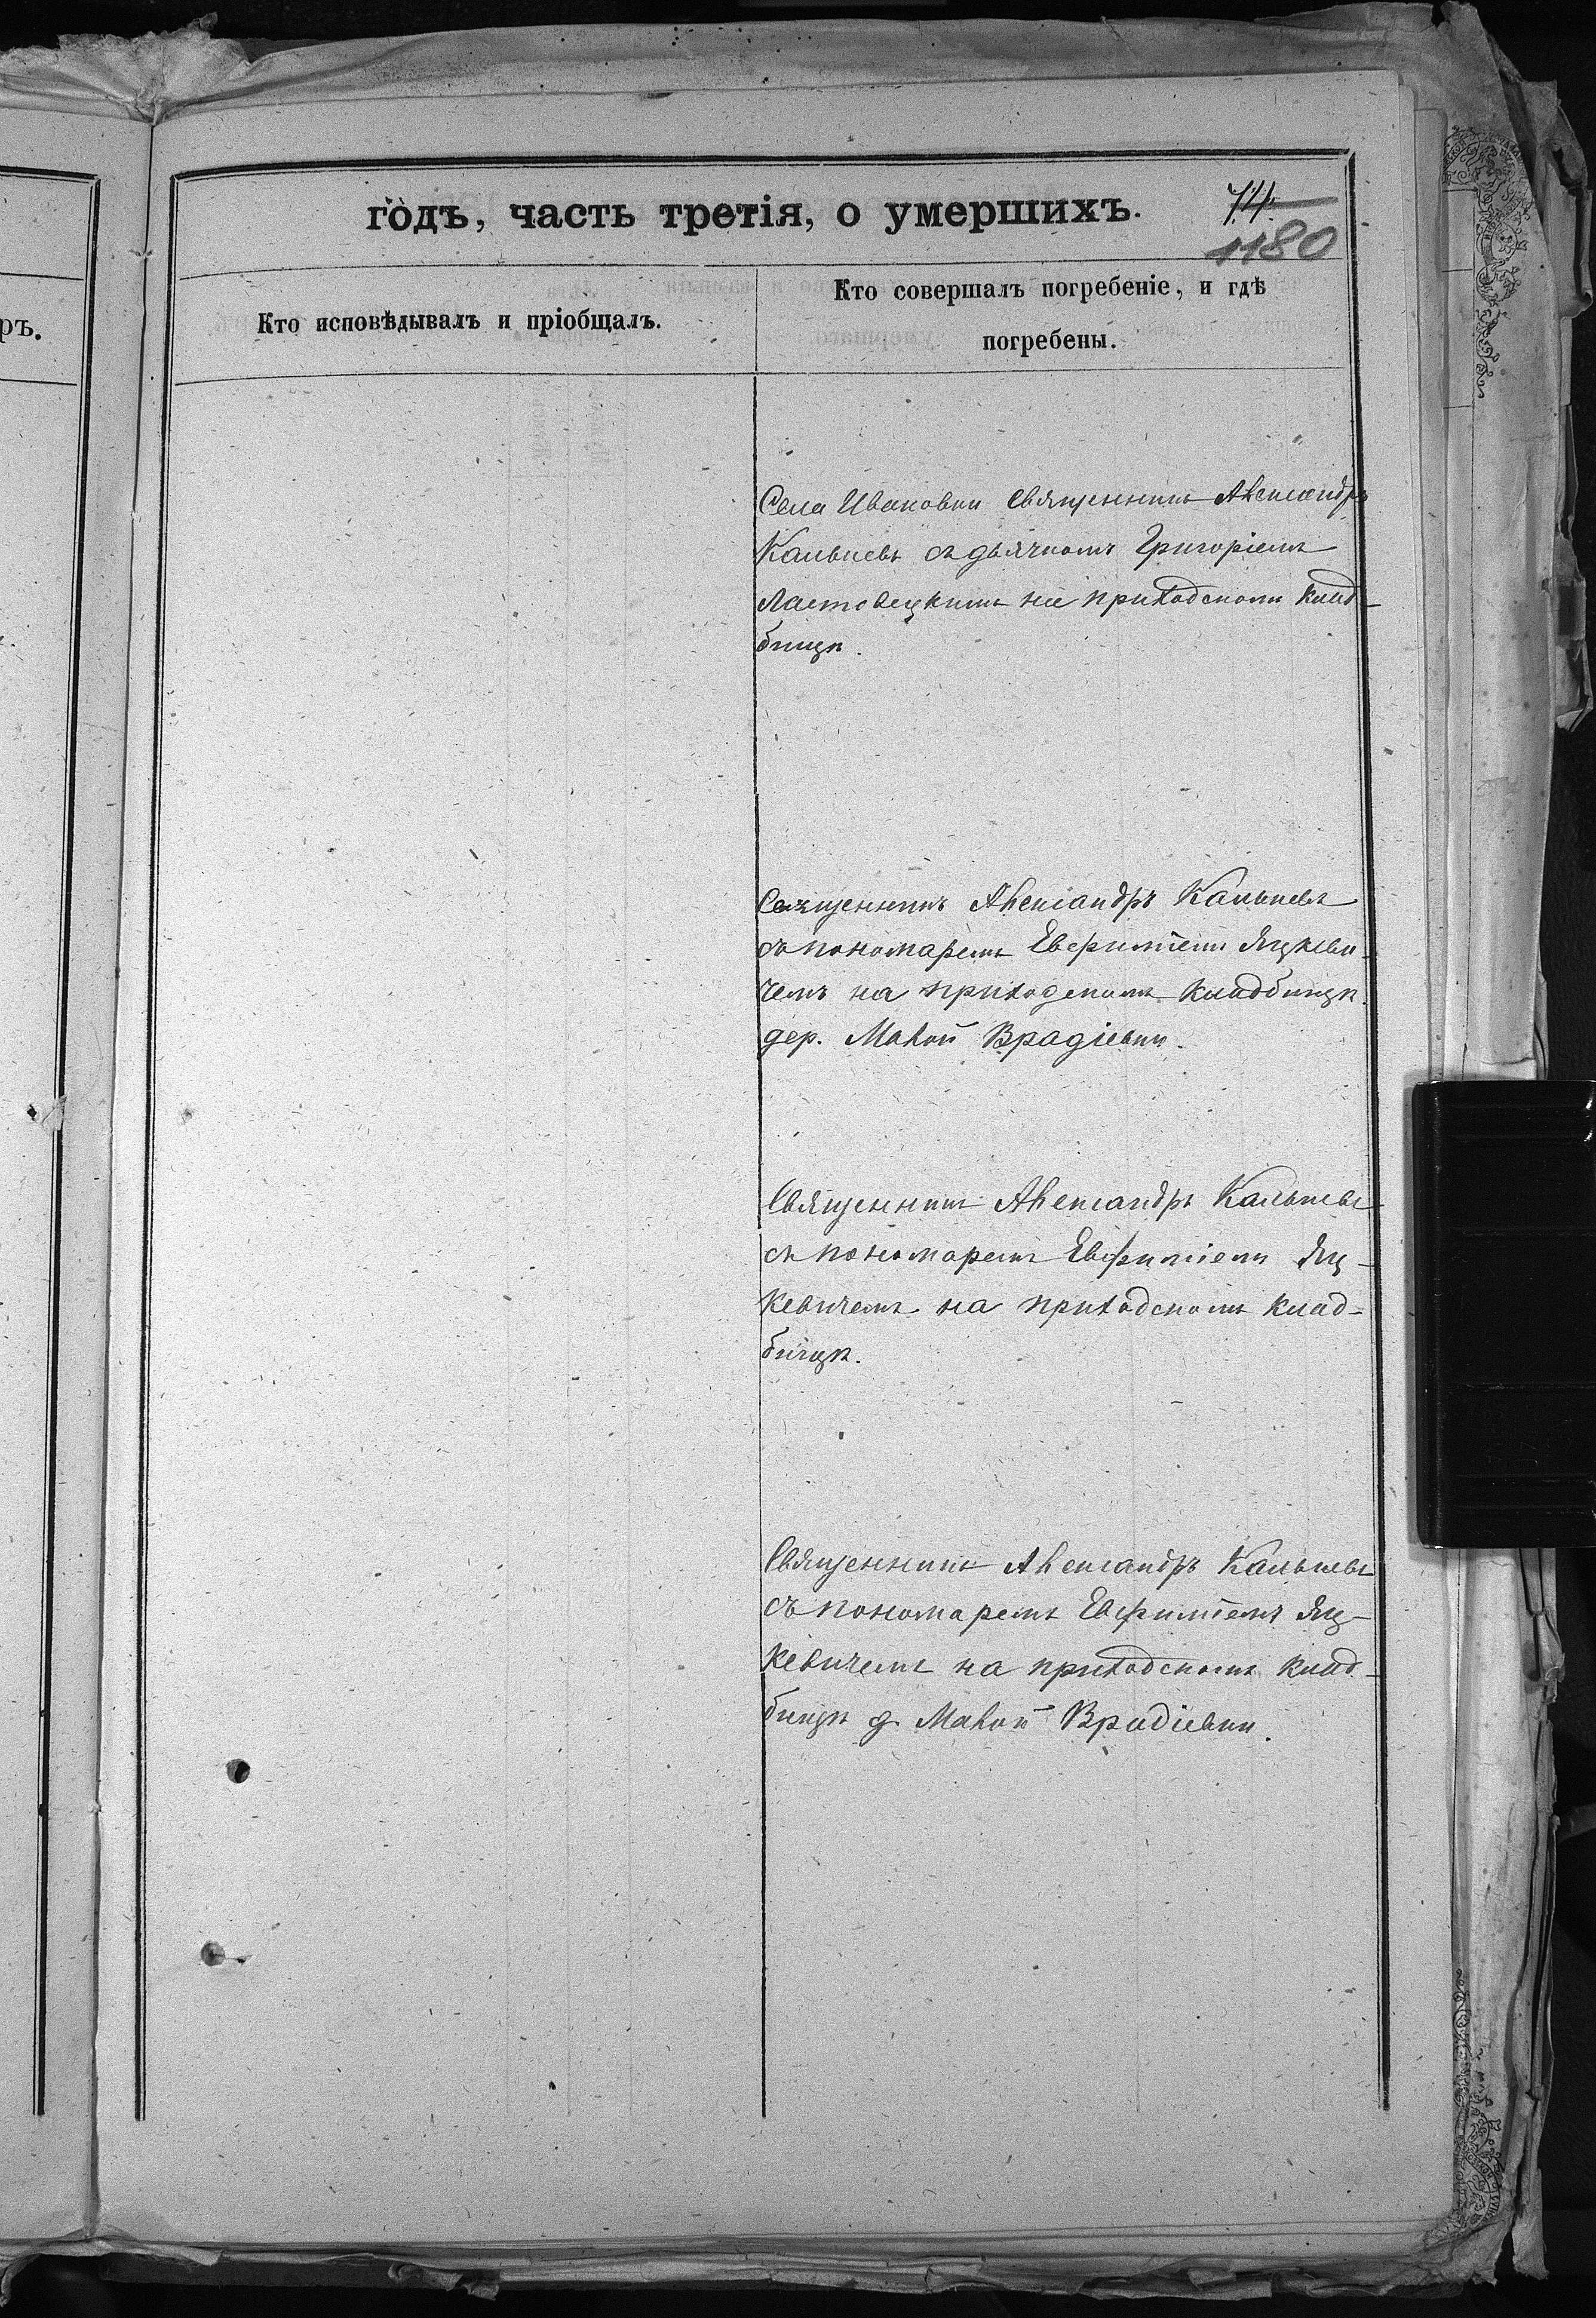 ръ.
годъ, часть третія, о умершихъ.
1180
Кто исповѣдывалъ и пріобщалъ.
Кто совершалъ погребеніе, и гдѣ
погребены.
Села Ивановки Священникъ Александръ
Кальневъ съ дьячкомъ Григоріемъ
Ластовецкимъ на приходскомъ клад-
бищѣ.
Священникъ Александръ Кальневъ
съ пономаремъ Евфиміемъ Яцкеви-
чемъ на приходскомъ кладбищѣ
дер. Малой Врадіевки.
Священникъ Александръ Кальневъ
съ пономаремъ Евфиміемъ Яц-
кевичемъ на приходскомъ клад-
бищѣ.
Священникъ Александръ Кальневъ
съ пономаремъ Евфиміемъ Яц-
кевичемъ на приходскомъ клад-
бищѣ д. Малой Врадіевки.